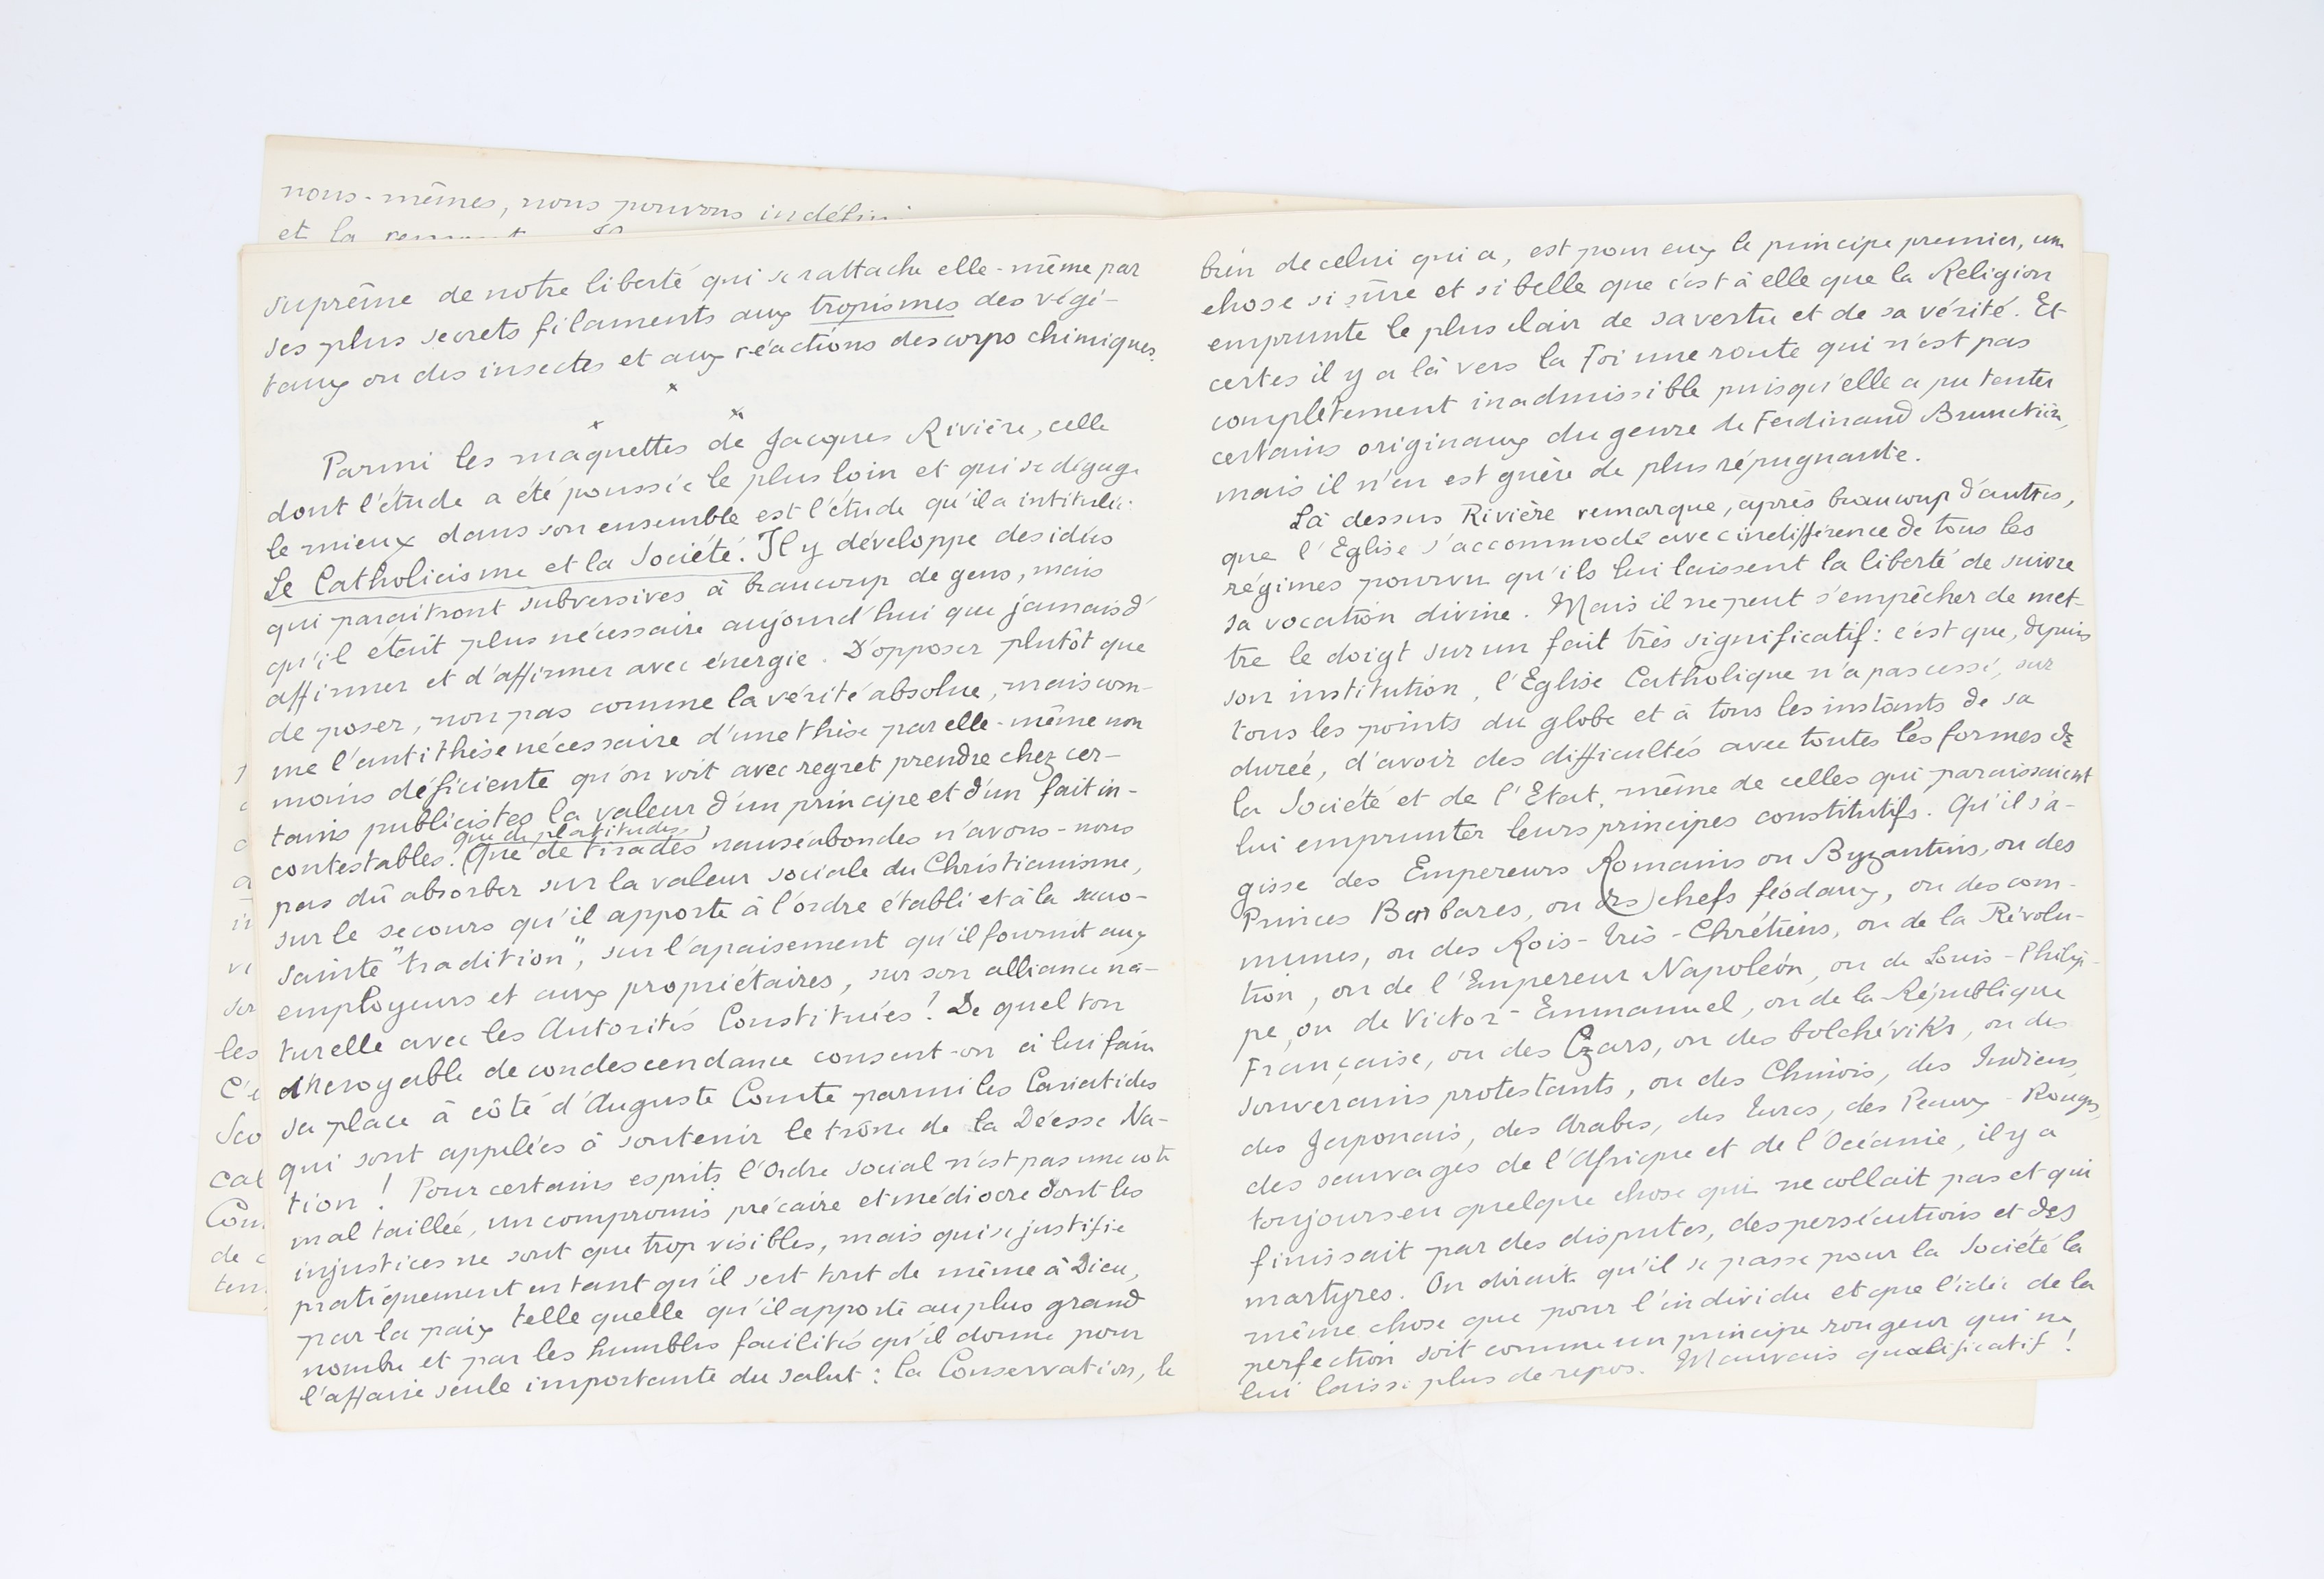 nous-mêmes, nous pouvons indéfini
et la
suprême de notre liberté qui se rattache elle-même par
ses plus secrets filaments aux tropismes des végé-
taux ou des insectes et aux réactions des corps chimiques.
x
x x
Parmi les maquettes de Jacques Rivière, celle
dont l'étude a été poussée le plus loin et qui se dégage
le mieux dans son ensemble est l'étude qu'il a intitulée:
Le Catholicisme et la Société. Il y développe des idées
qui paraitront subversives à beaucoup de gens, mais
qu'il était plus nécessaire aujourd'hui que jamais d'
affirmer et d'affirmer avec énergie. D'opposer plutôt que
de poser, non pas comme la vérité absolue, mais com-
me l'antithèse nécessaire d'une thèse par elle-même non
moins déficiente qu'on voit avec regret prendre chez cer-
tains publicistes la valeur d'un principe et d'un fait in-
que de platitudes
contestables. (Que de tirades nauséabondes n'avons-nous
pas dû absorber sur la valeur sociale du Christianisme,
sur le secours qu'il apporte à l'ordre établi et à la sacro-
sainte "tradition", sur l'apaisement qu'il fournit aux
employeurs et aux propriétaires, sur son alliance na-
turelle avec les Autorités Constituées! De quel ton
incroyable de condescendance consent-on à lui faire
sa place à côté d'Auguste Comte parmi les Cariatides
qui sont appelées à soutenir le trône de la Déesse Na-
tion! Pour certains esprits l'Ordre social n'est pas une cote
mal taillée, un compromis précaire et médiocre dont les
injustices ne sont que trop visibles, mais qui se justifie
pratiquement en tant qu'il sert tout de même à Dieu,
par la paix telle quelle qu'il apporte au plus grand
nombre et par les humbles facilités qu'il donne pour
l'affaire seule importante du salut: la Conservation, le
bien de celui qui a, est pour eux le principe premier, une
chose si sûre et si belle que c'est à elle que la Religion
emprunte le plus clair de sa vertu et de sa vérité. Et
certes il y a là vers la Foi une route qui n'est pas
complètement inadmissible puisqu'elle a pu tenter
certains originaux du genre de Ferdinand Brunetière,
mais il n'en est guère de plus répugnante.
Là dessus Rivière remarque, après beaucoup d'autres,
que l'Eglise s'accommode avec indifférence de tous les
régimes pourvu qu'ils lui laissent la liberté de suivre
sa vocation divine. Mais il ne peut s'empêcher de met-
tre le doigt sur un fait très significatif: c'est que, depuis
son institution, l'Eglise Catholique n'a pas cessé, sur
tous les points du globe et à tous les instants de sa
durée, d'avoir des difficultés avec toutes les formes de
la Société et de l'Etat, même de celles qui paraissaient
lui emprunter leurs principes constitutifs. Qu'il s'a-
gisse des Empereurs Romains ou Byzantins, ou des
Princes Barbares, ou des chefs féodaux, ou des com-
munes, ou des Rois-très-Chrétiens, ou de la Révolu-
tion, ou de l'Empereur Napoléon, ou de Louis-Philip-
pe, ou de Victor-Emmanuel, ou de la République
Française, ou des Czars, ou des bolchéviks, ou des
souverains protestants, ou des Chinois, des Indiens,
des Japonais, des Arabes, des Turcs, des Peaux-Rouges,
des sauvages de l'Afrique et de l'Océanie, il y a
toujours eu quelque chose qui ne collait pas et qui
finissait par des disputes, des persécutions et des
martyres. On dirait qu'il se passe pour la Société la
même chose que pour l'individu et que l'idée de la
perfection soit comme un principe rongeur qui ne
lui laisse plus de repos. Mauvais qualificatif!